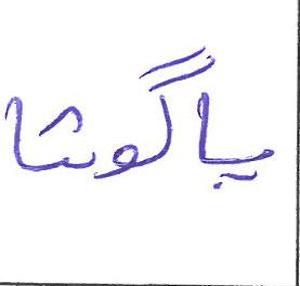 یاگوشا